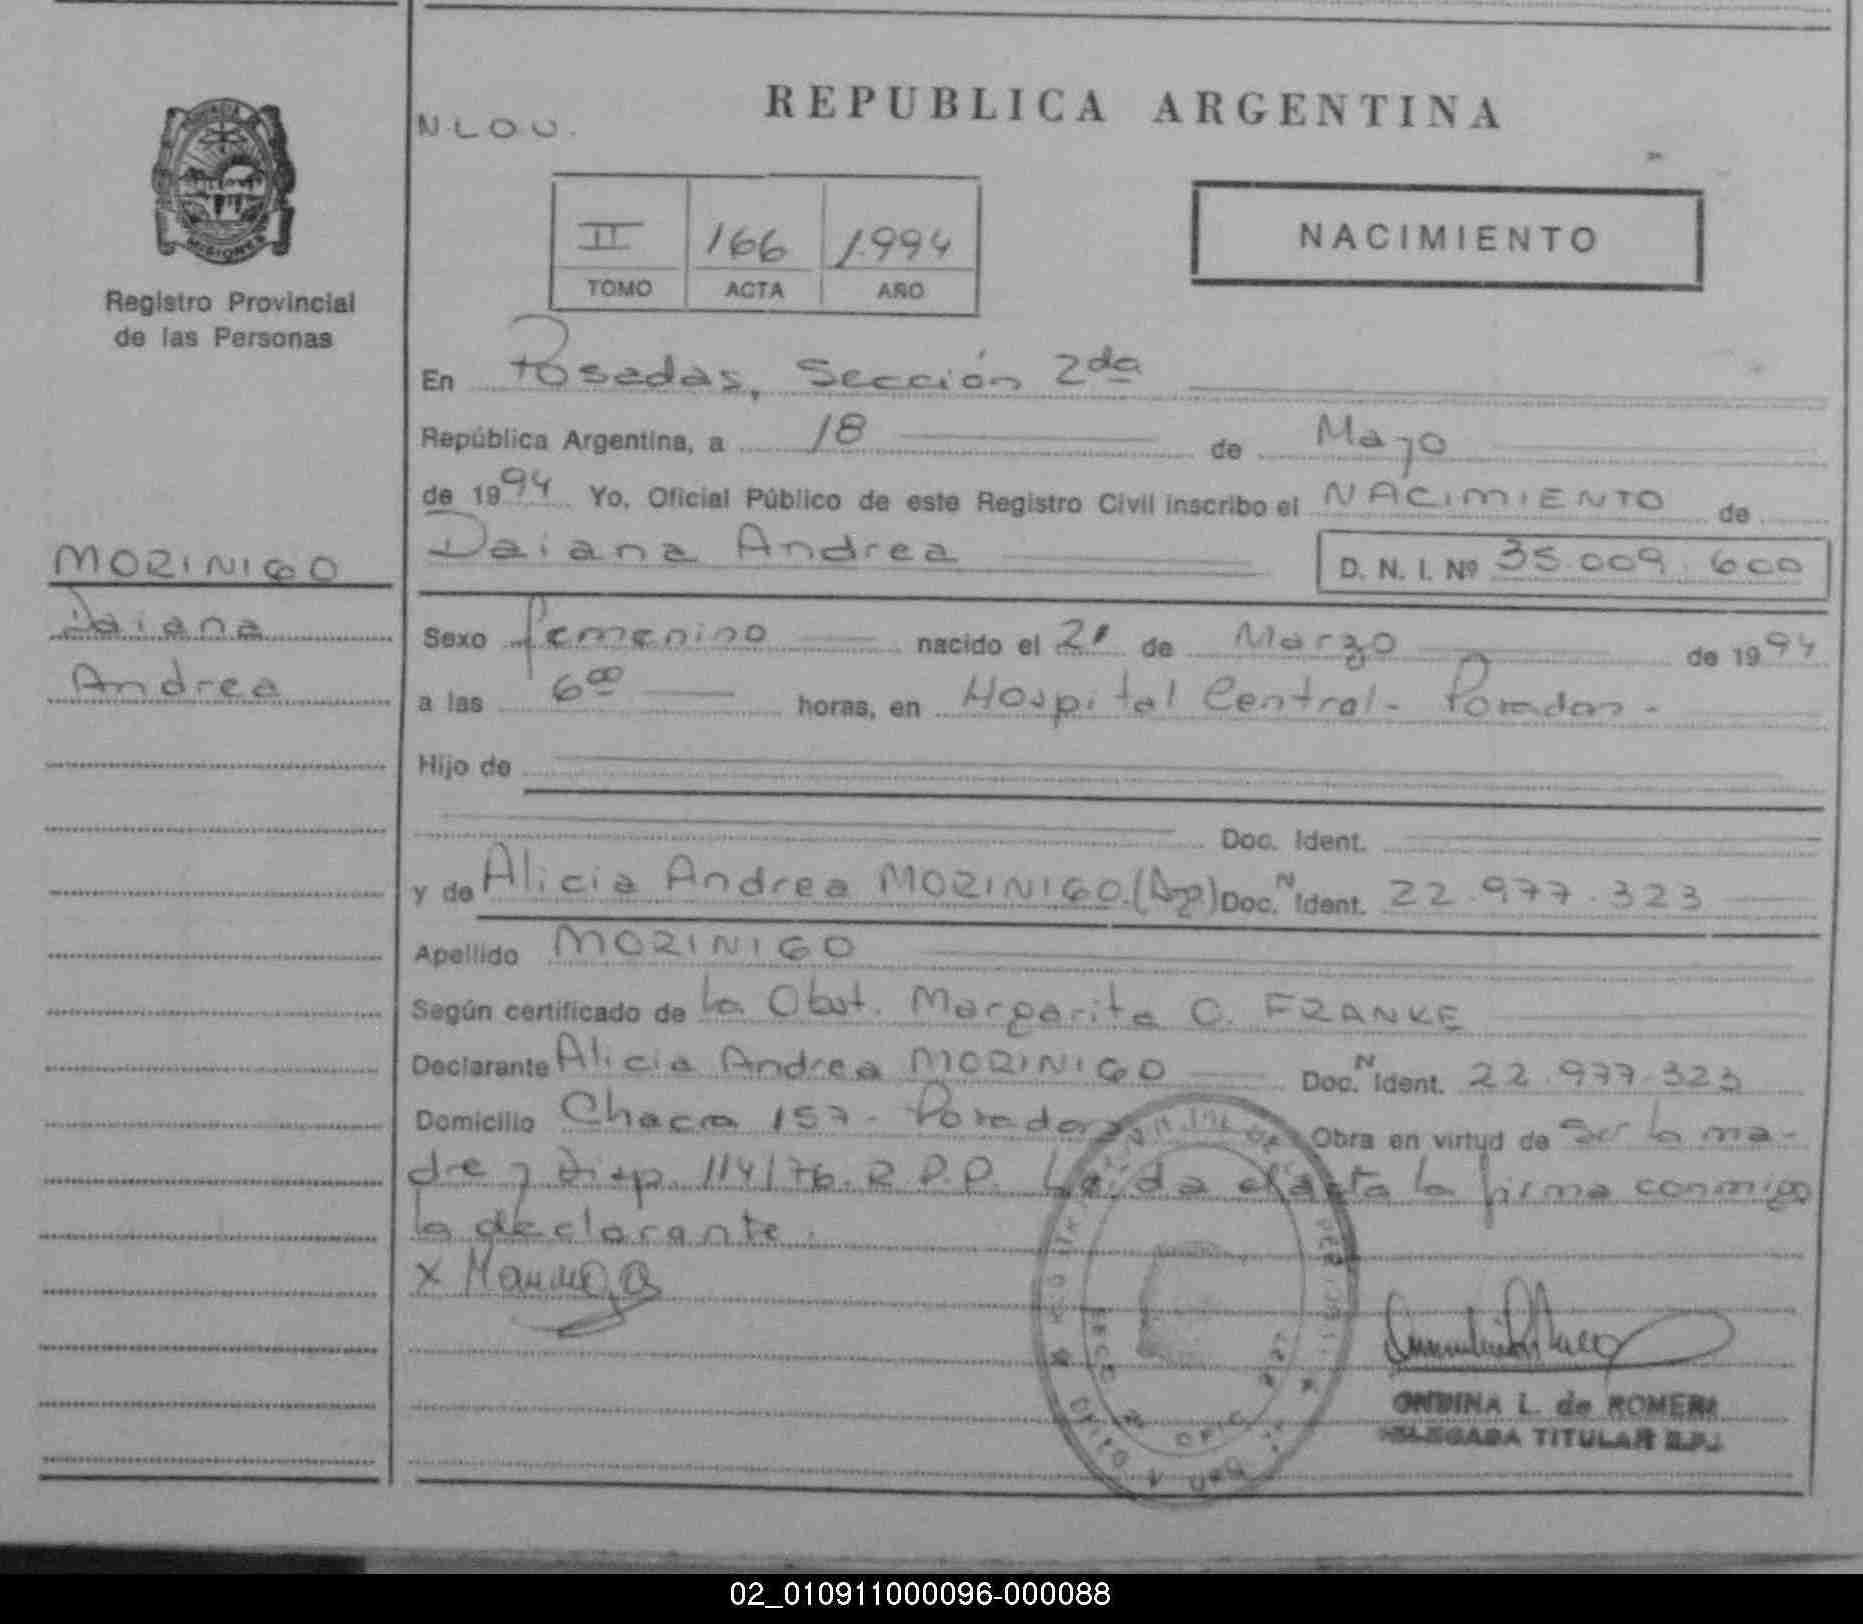 MISIONES
Registro Provincial
de las Personas
MORINIGO
Daiana
Andrea
N.L.O.U.
REPUBLICA ARGENTINA
II 166 1.994
TOMO ACTA AÑO
NACIMIENTO
En Posadas, Sección 2da
República Argentina, a 18 de Mayo
de 1994 Yo, Oficial Público de este Registro Civil inscribo el NACIMIENTO de
Daiana Andrea D. N. I. Nº 35.009.600
Sexo femenino nacido el 21 de Marzo de 1994
a las 6 00 horas, en Hospital Central - Posadas -
Hijo de
Doc. Ident.
y de Alicia Andrea MORINIGO (Arg.) Doc. N Ident. 22.977.323
Apellido MORINIGO
Según certificado de la Obst. Margarita C. FRANKE
Declarante Alicia Andrea MORINIGO Doc. N Ident. 22.977.323
Domicilio Chacra 157 - Posadas Obra en virtud de ser la ma-
dre y Disp. 114/76. R.P.P. Leída el acta la firma conmigo
la declarante.
X
ONDINA L. de ROMERO
DELEGADA TITULAR R.P.
02_010911000096-000088